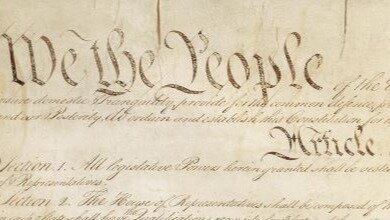 We the People of the
insure domestic Tranquility, provide for the common defence,
and our Posterity, do ordain and establish this Constitution for
Article
Section 1. All legislative Powers herein granted shall be vested
of Representatives.
Section 2. The House of Representatives shall be composed of